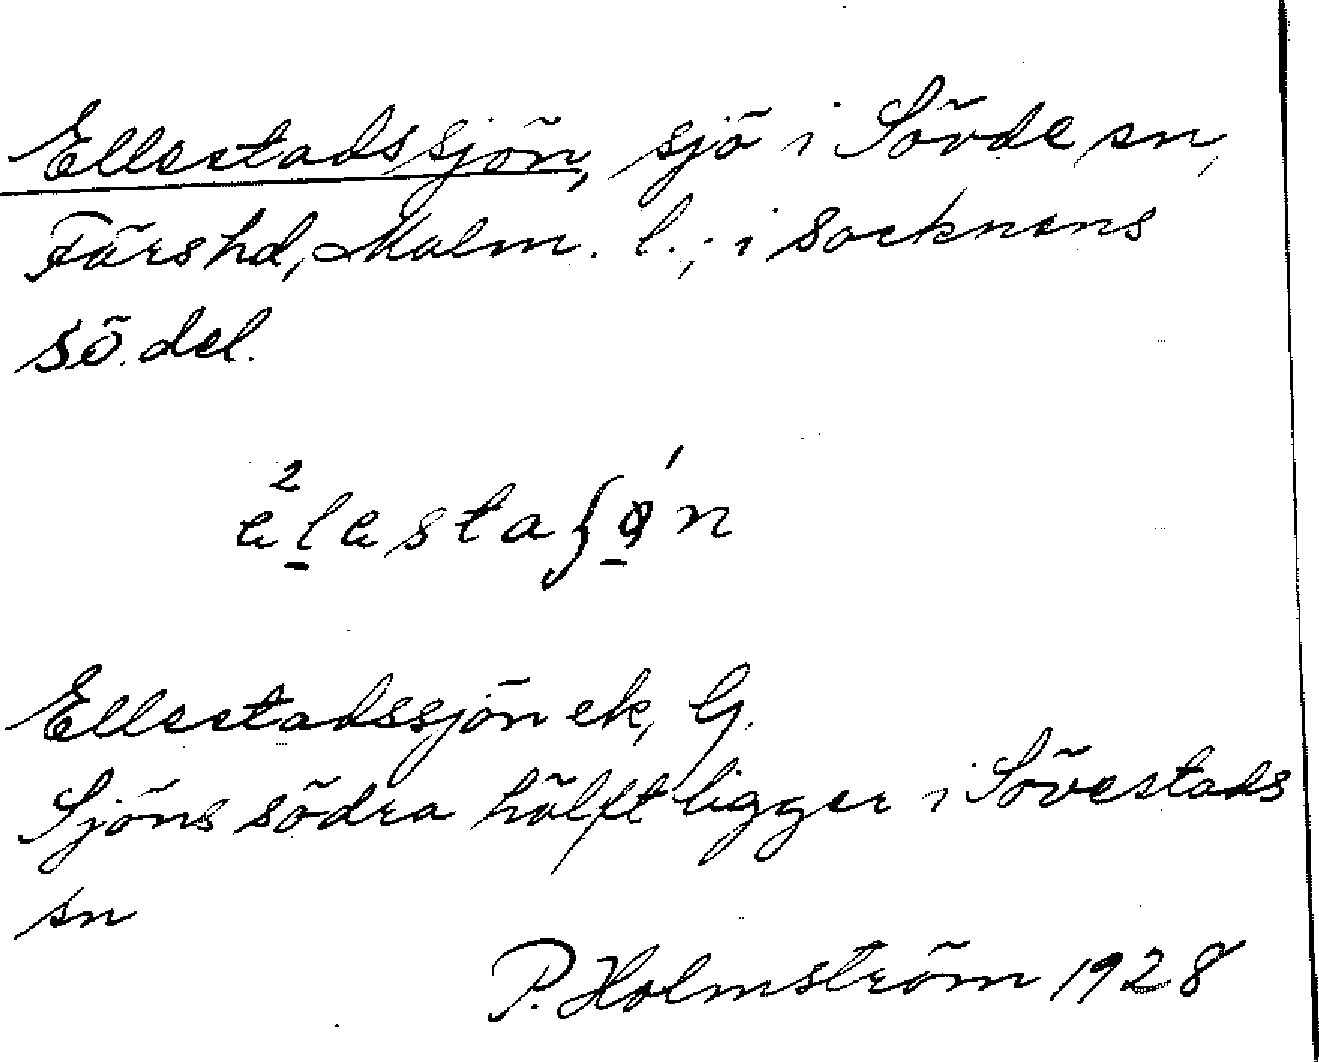 Ellestadssjön, sjö i Sövde sn,
Färs hd, Malm. l.; i socknens
sö. del.
Ellestadssjön ek, G.
Sjöns södra hälft ligger i Sövestads
sn
P. Holmström 1928